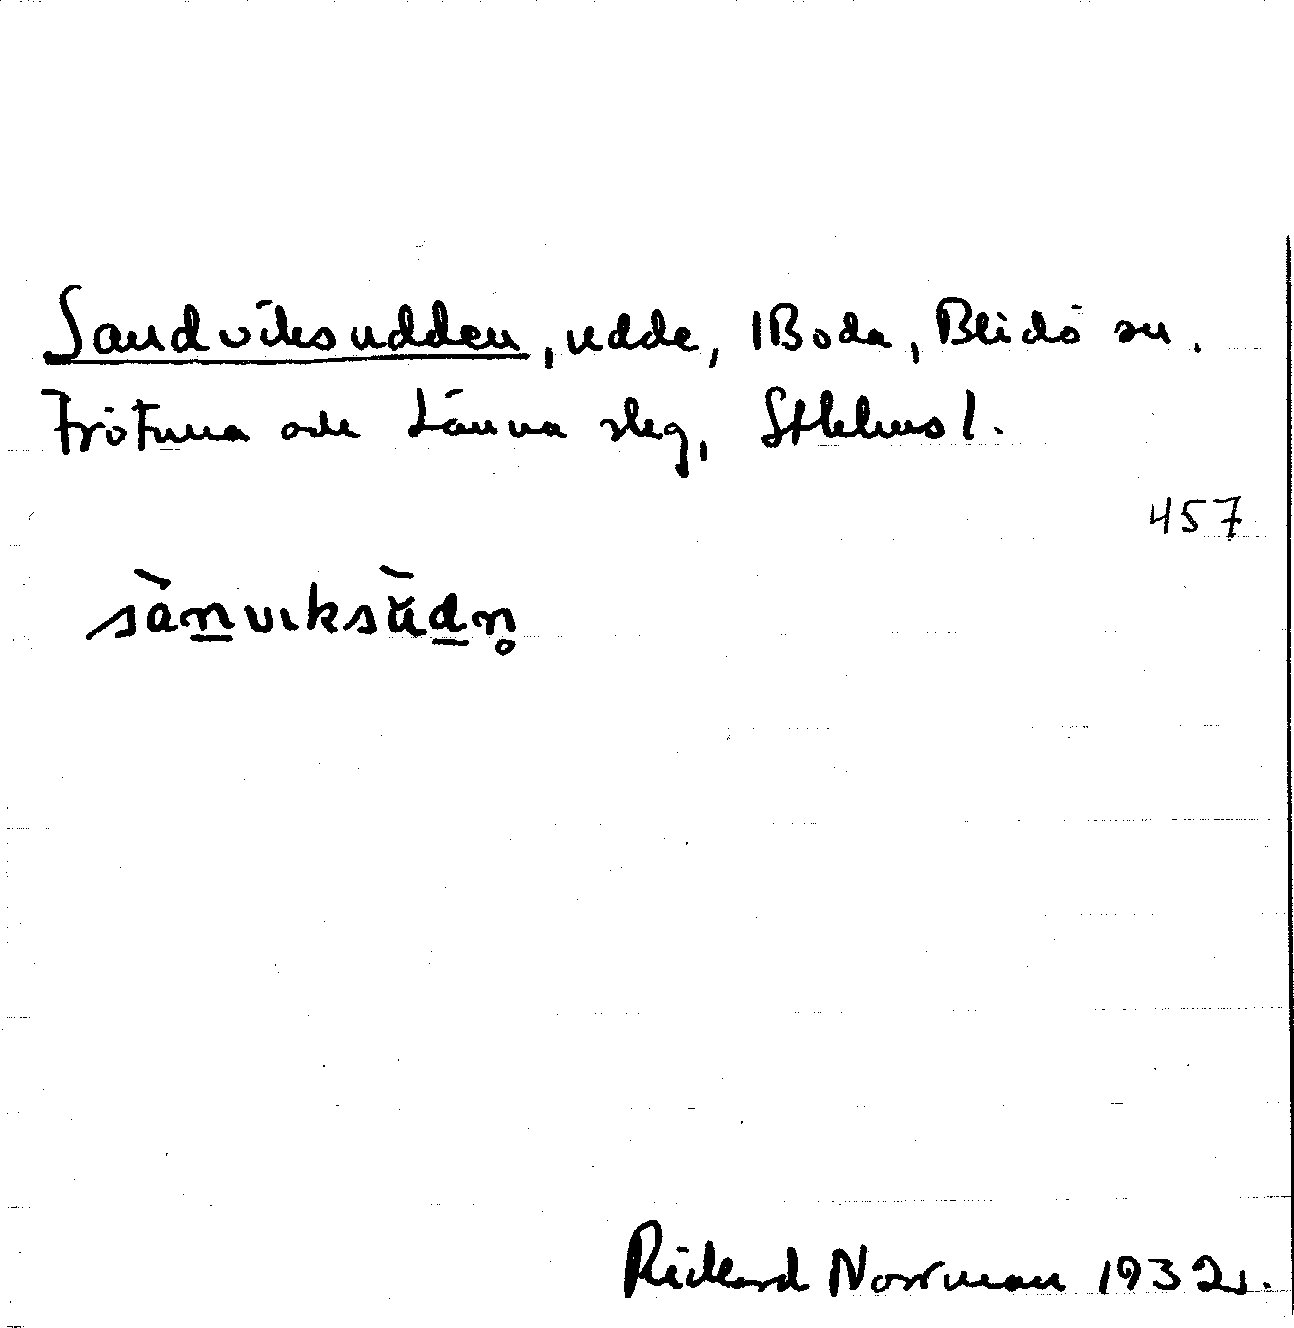 Sandviksudden, udde, 1 Boda, Blidö sn.
Frötuna och Länna slg, Sthlms l.
457
sànviksùdn̥
Rickard Norrman 1932.